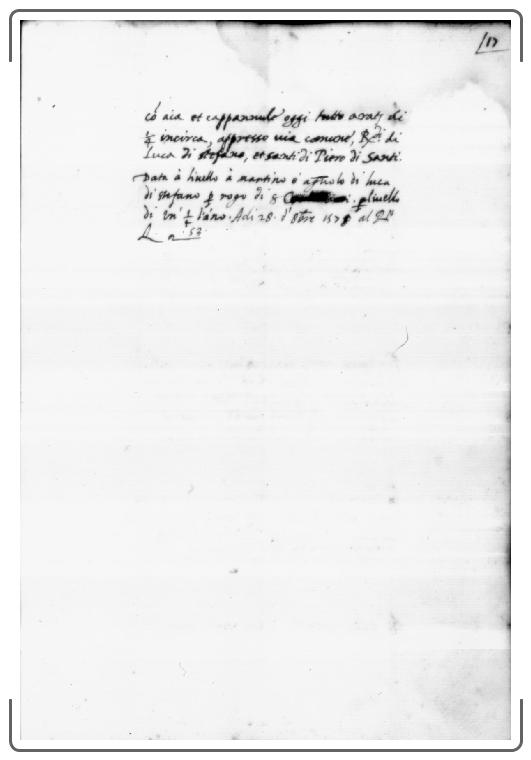 17
co aia et cappannulo oggi tutto di
1/4 incirca, appresso uia comune, di
Luca di stefano, et santi di Piero di Santi.
Data à liuello à martino e agnolo di luca
di stefano p rogo di s p liuello
di un 1/4 Adi 28. d' 8bre 1578 al
n 53